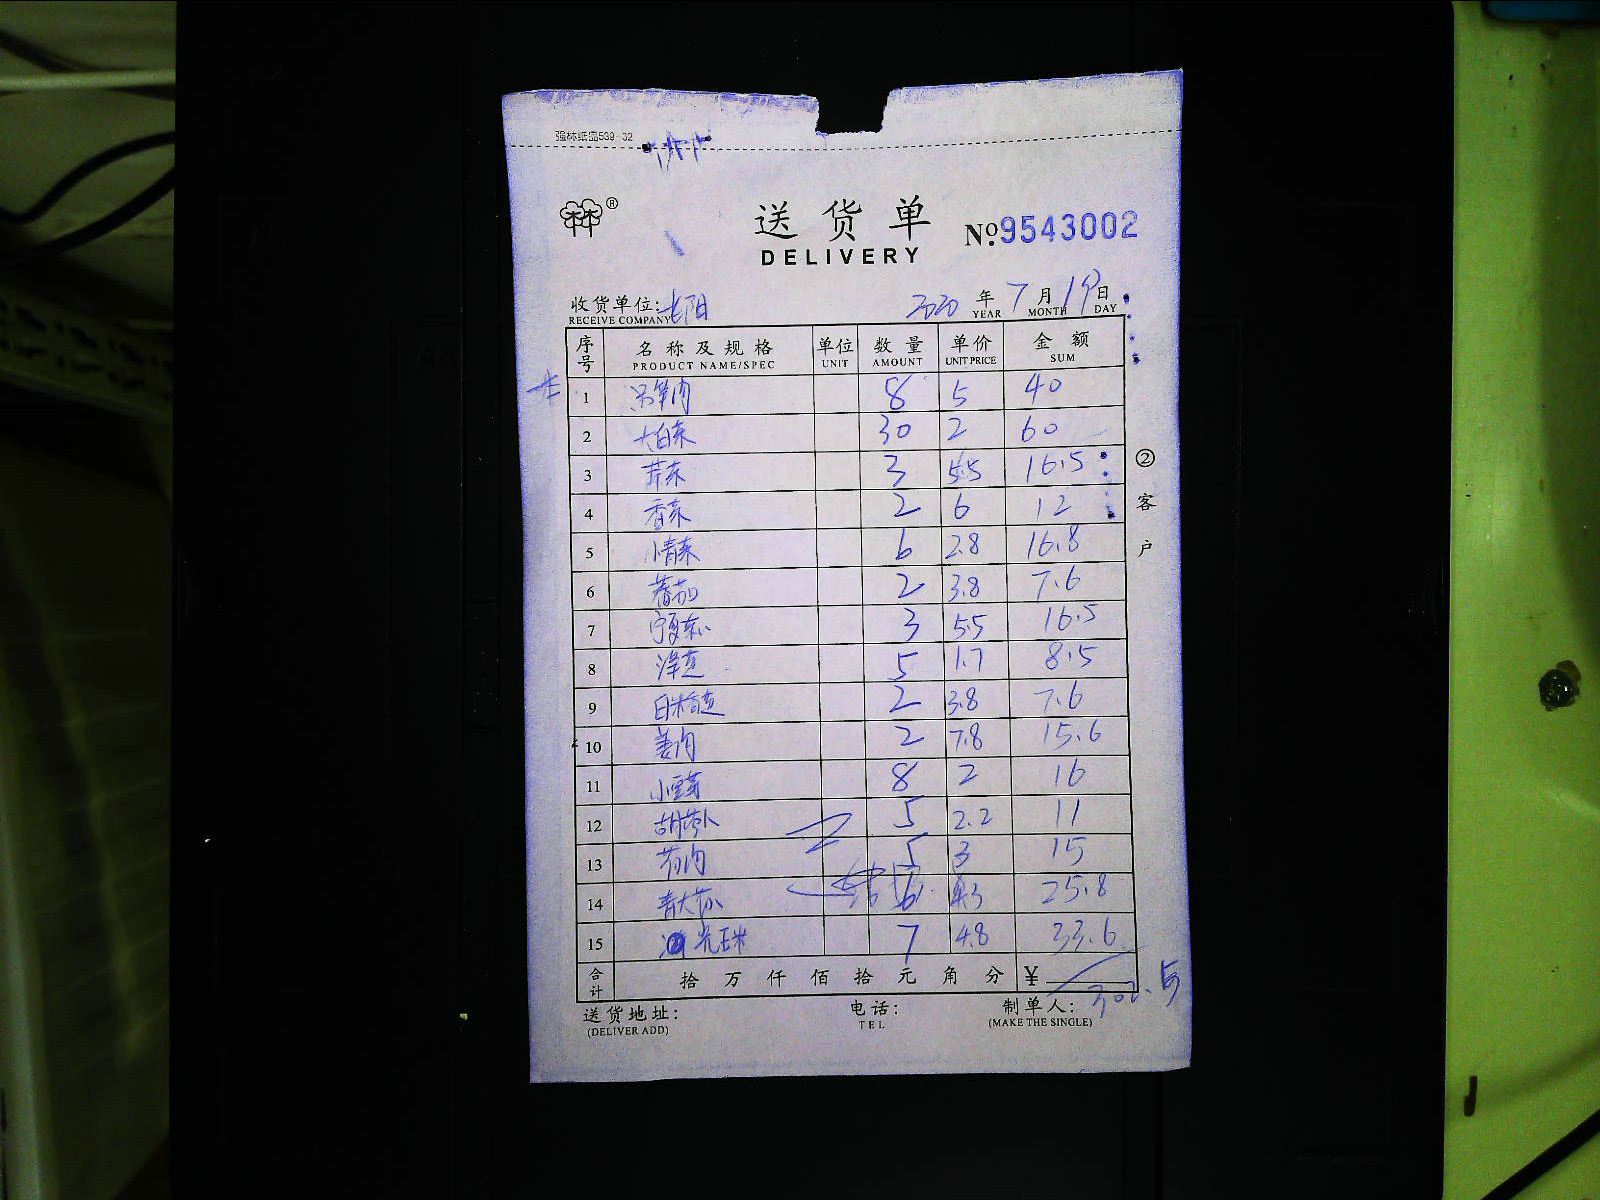 强林纸品539-32
林林®
送货单 No.9543002
DELIVERY
收货单位: 2020 年 7 月 19 日
RECEIVE COMPANY YEAR MONTH DAY
序号 名称及规格 单位 数量 单价 金额
PRODUCT NAME/SPEC UNIT AMOUNT UNIT PRICE SUM
1 8 5 40
2 大白菜 30 2 60
3 芹菜 3 5.5 16.5
4 香菜 2 6 12
5 小青菜 6 2.8 16.8
6 番茄 2 3.8 7.6
7 宁夏菜心 3 5.5 16.5
8 洋芋 5 1.7 8.5
9 2 3.8 7.6
10 姜肉 2 7.8 15.6
11 小豆芽 8 2 16
12 胡萝卜 5 2.2 11
13 5 3 15
14 青大 6 4.3 25.8
15 光玉米 7 4.8 33.6
合计 拾 万 仟 佰 拾 元 角 分 ¥ 302.5
送货地址: 电话: 制单人:
(DELIVER ADD) TEL (MAKE THE SINGLE)
②客户